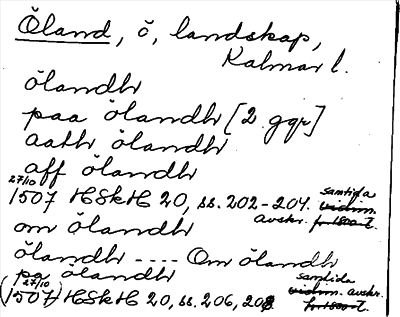 Öland, ö, landskap,
Kalmar l.
ölandh
paa ölandh [2 ggr]
aath ölandh
aff ölandh
27/10 samtida
1507 HSkH 20, ss. 202-204. vidim.
avskr. fr 1800-t.
om ölandh
ölandh ---- Om ölandh
pa ölandh
27/10 samtida
(1507) HSkH 20, ss. 206, 208 vidim. avskr.
fr 1800-t.